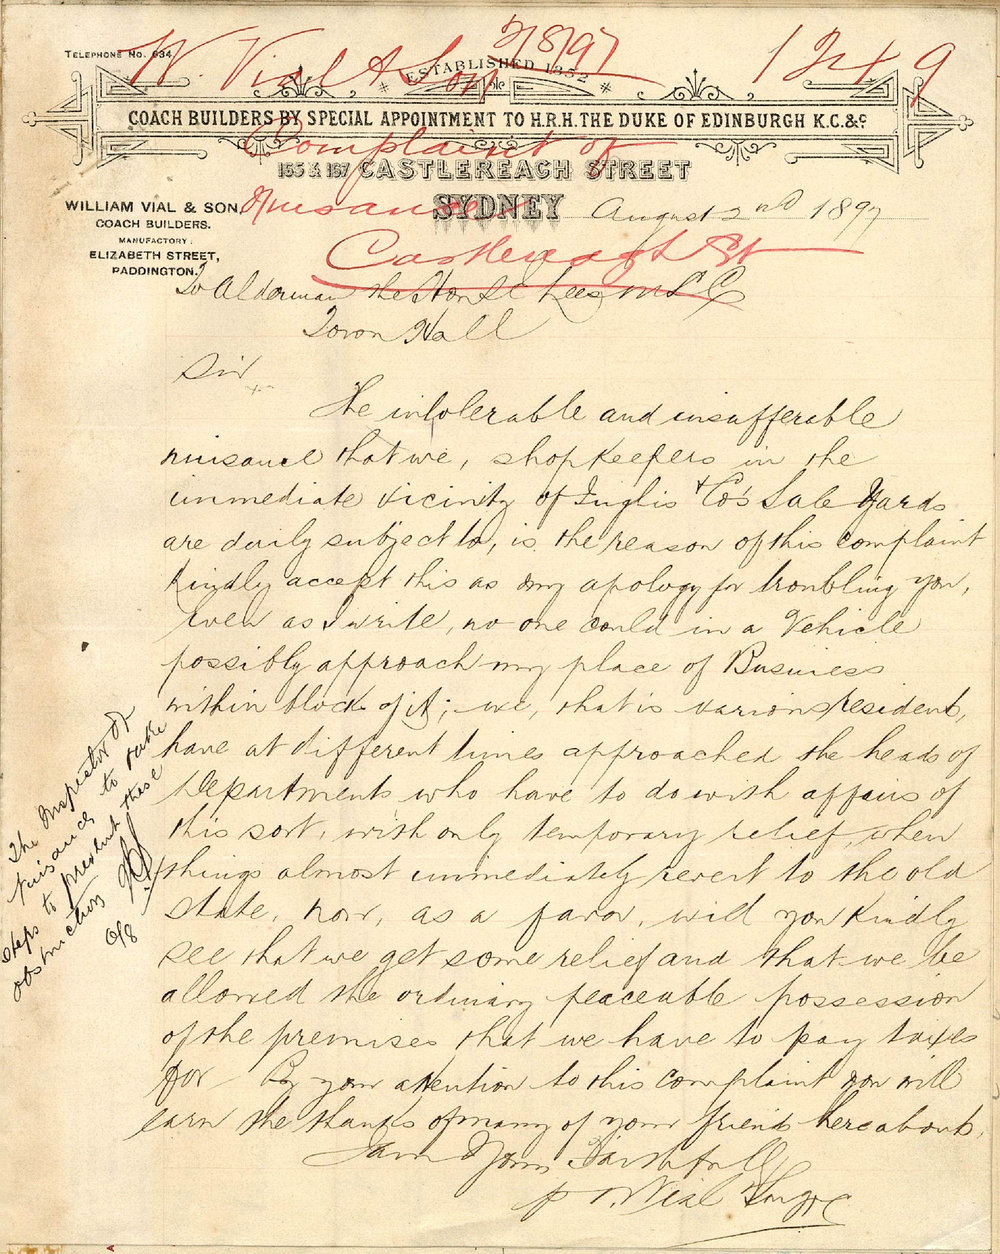 TELEPHONE No. 634.
W. Vial & Son 2/8/97 1249
ESTABLISHED 1852
COACH BUILDERS BY SPECIAL APPOINTMENT TO H.R.H. THE DUKE OF EDINBURGH K.C.&c.
Complaint of
155 & 157 CASTLEREACH STREET
WILLIAM VIAL & SON,
COACH BUILDERS.
MANUFACTORY:
ELIZABETH STREET,
PADDINGTON.
Nuisance
SYDNEY August 2nd 1897
Castlereagh St
To Alderman the Hon S E Lees M L C
Town Hall
Sir
The intolerable and insufferable
nuisance that we, shopkeepers in the
immediate vicinity of Inglis & Co's Sale Yards
are daily subject to, is the reason of this complaint
kindly accept this as my apology for troubling you,
even as I write, no one could in a Vehicle
possibly approach my place of Business
within block of it; we, that is various residents,
have at different times approached the heads of
Departments who have to do with affairs of
this sort, with only temporary relief, when
things almost immediately revert to the old
state, now, as a favor, will you kindly
see that we get some relief and that we be
allowed the ordinary peaceable possession
of the premises that we have to pay taxes
for By your attention to this complaint you will
earn the thanks of many of your friends hereabouts,
I am Yours Faithfully
p W Vial
The Inspector of
Nuisances to take
steps to prevent these
obstructions
6/8